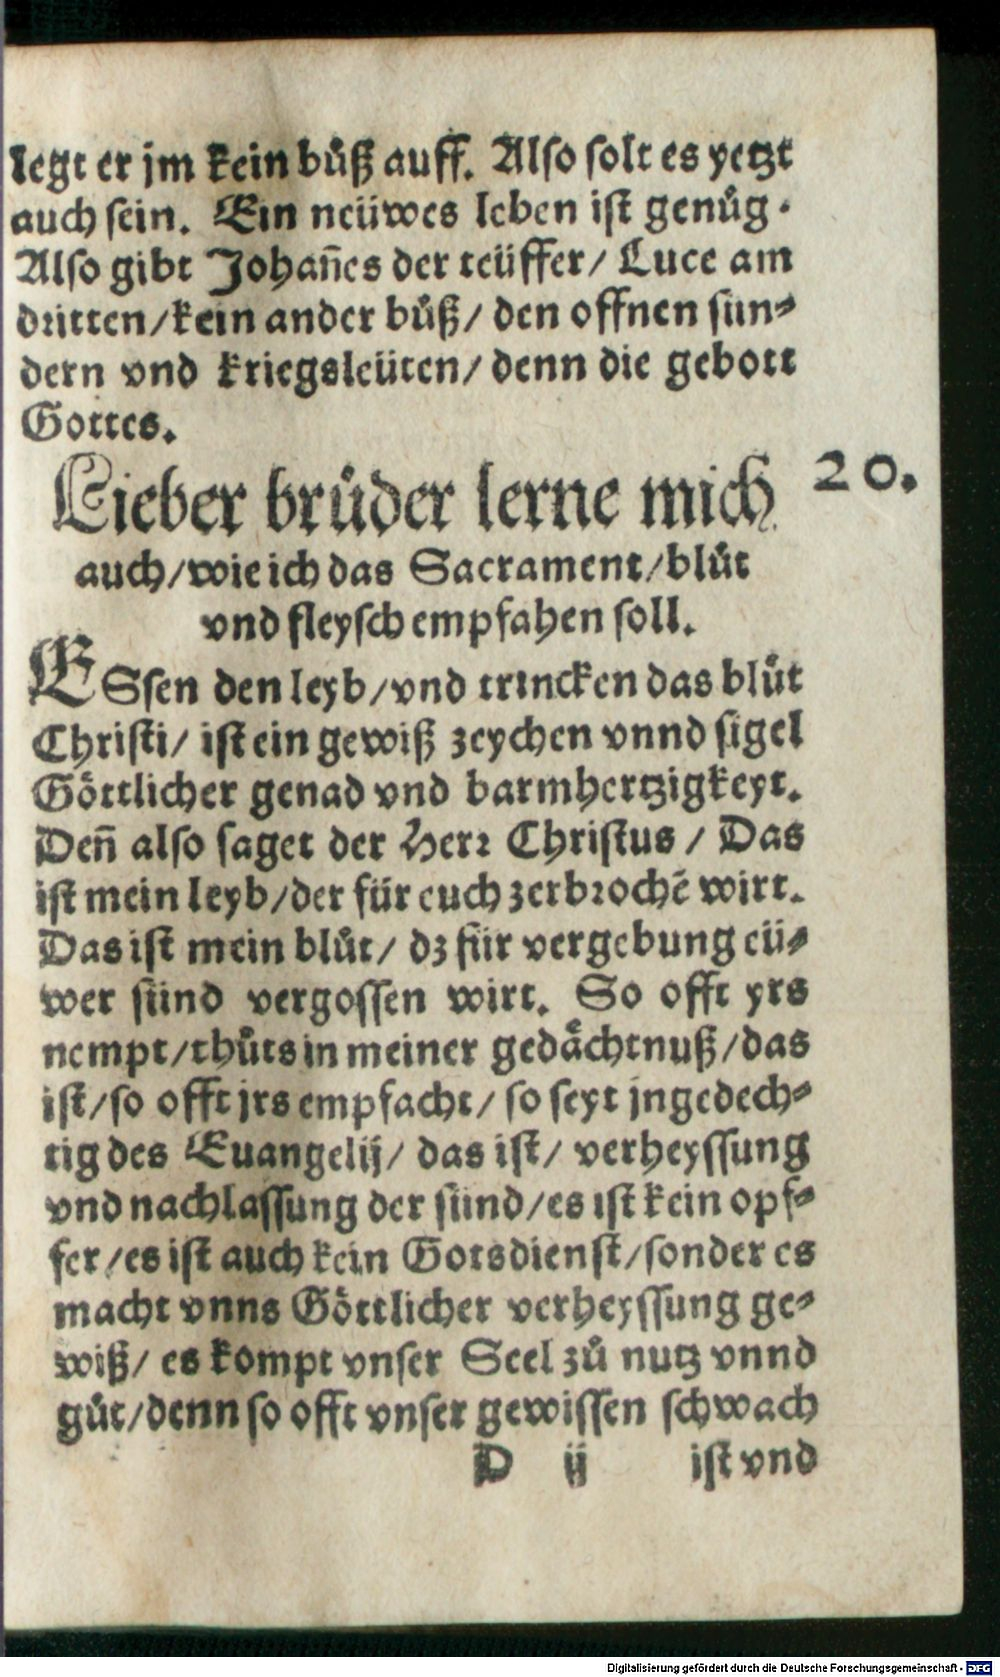 legt er jm kein buͦß auff. Also solt es yetzt
auch sein. Ein neüwes leben ist genuͦg.
Also gibt Johañes der teüffer/ Luce am
dritten/kein ander buͦß/ den offnen sün⸗
dern vnd kriegsleüten/ denn die gebott
Gottes.
Lieber bruͦder lerne mich
20.
auch/wie ich das Sacrament/bluͦt
vnd fleysch empfahen soll.
ESsen den leyb/vnd trincken das bluͦt
Christi/ ist ein gewiß zeychen vnnd sigel
Goͤttlicher genad vnd barmhertzigkeyt.
Deñ also saget der Herr Christus / Das
ist mein leyb/der für euch zerbrochē wirt.
Das ist mein bluͦt/ dz für vergebung eü⸗
wer sünd vergossen wirt. So offt yrs
nempt/thuͦts in meiner gedaͤchtnuß/das
ist/so offt jrs empfacht/ so seyt jngedech⸗
tig des Euangelij/ das ist/ verheyssung
vnd nachlassung der sünd/es ist kein opf⸗
fer/es ist auch kein Gotsdienst/sonder es
macht vnns Goͤttlicher verheyssung ge⸗
wiß/ es kompt vnser Seel zuͦ nutz vnnd
guͦt/denn so offt vnser gewissen schwach
D ij ist vnd
Digitalisierung gefördert durch die Deutsche Forschungsgemeinschaft - DFG